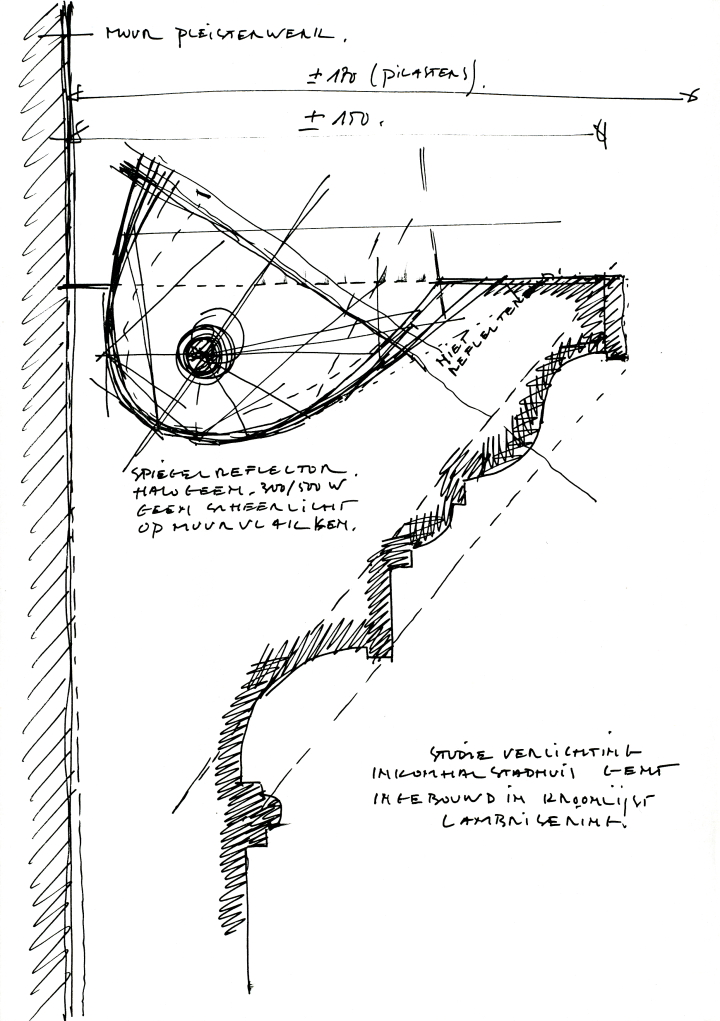 MUUR PLEISTERWERK.
± 170 (PILASTERS).
± 150.
NIET
REFLECTEREND
SPIEGELREFLECTOR.
HALOGEEN. 300/500 W
GEEN SCHEERLICHT
OP MUURVLAKKEN.
STUDIE VERLICHTING
INKOMHAL STADHUIS GENT
INGEBOUWD IN KROONLIJST
LAMBRISERING.